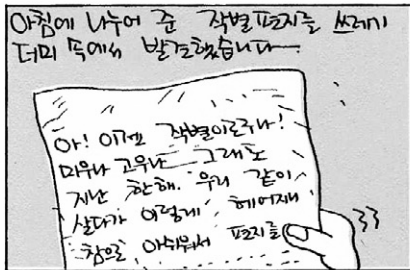 아침에 나누어 준 작별편지를 쓰레기
더미 속에서 발견했습니다—.
아! 이젠 작별이로구나!
미우나 고우나 그래도
지난 한해. 우리 같이
살다가 이렇게 헤어지니
참으로 아쉬워서 편지를